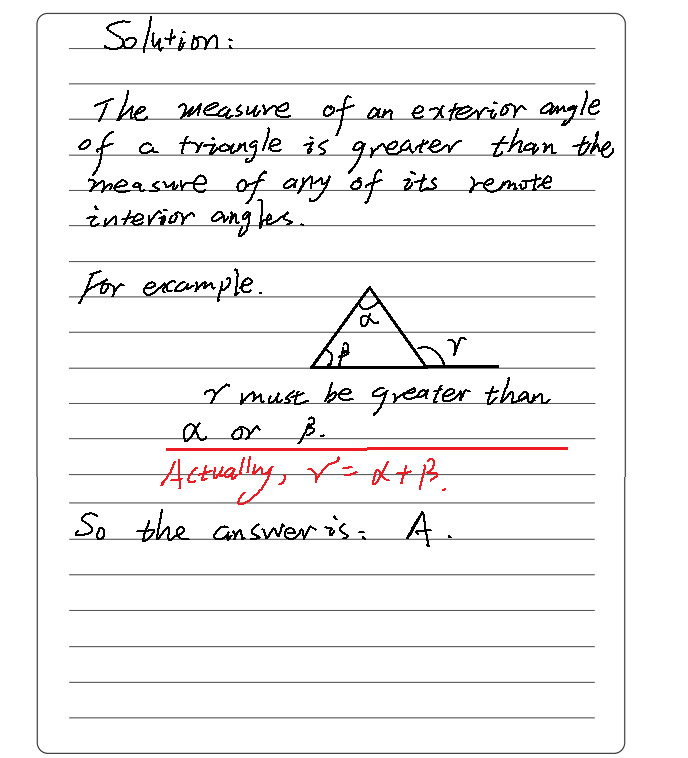 Solution:
The measure of an exterior angle
of a triangle is greater than the
measure of any of its remote
interior angles.
For example.
α
β
γ
γ must be greater than
α or β.
Actually, γ = α + β.
So the answer is: A.